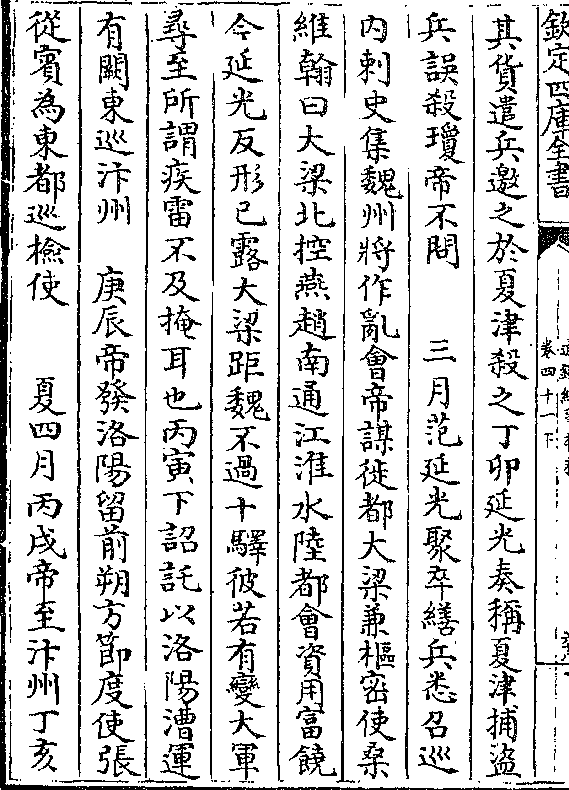 欽定四庫全書
卷四十一下
其貨遣兵邀之於夏津殺之丁卯延光奏稱夏津捕盜
兵誤殺瓊帝不問　三月范延光聚卒繕兵悉召巡
内刺史集魏州將作亂會帝謀徙都大梁兼樞密使桑
維翰曰大梁北控燕趙南通江淮水陸都會資用富饒
今延光反形已露大梁距魏不過十驛彼若有變大軍
尋至所謂疾雷不及掩耳也丙寅下詔託以洛陽漕運
有闕東巡汴州　庚辰帝發洛陽留前朔方節度使張
從賓為東都巡檢使　夏四月丙戌帝至汴州丁亥